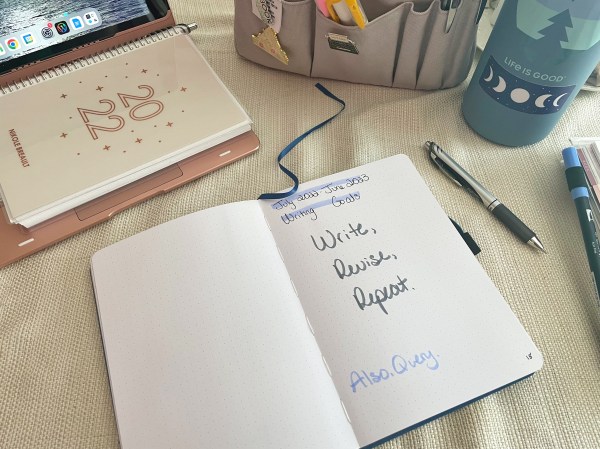 2022
NIKKIE BREAULT
LIFE IS GOOD
July 2022 - June 2023
Writing Goals
Write,
Revise,
Repeat.
Also, Query.
18